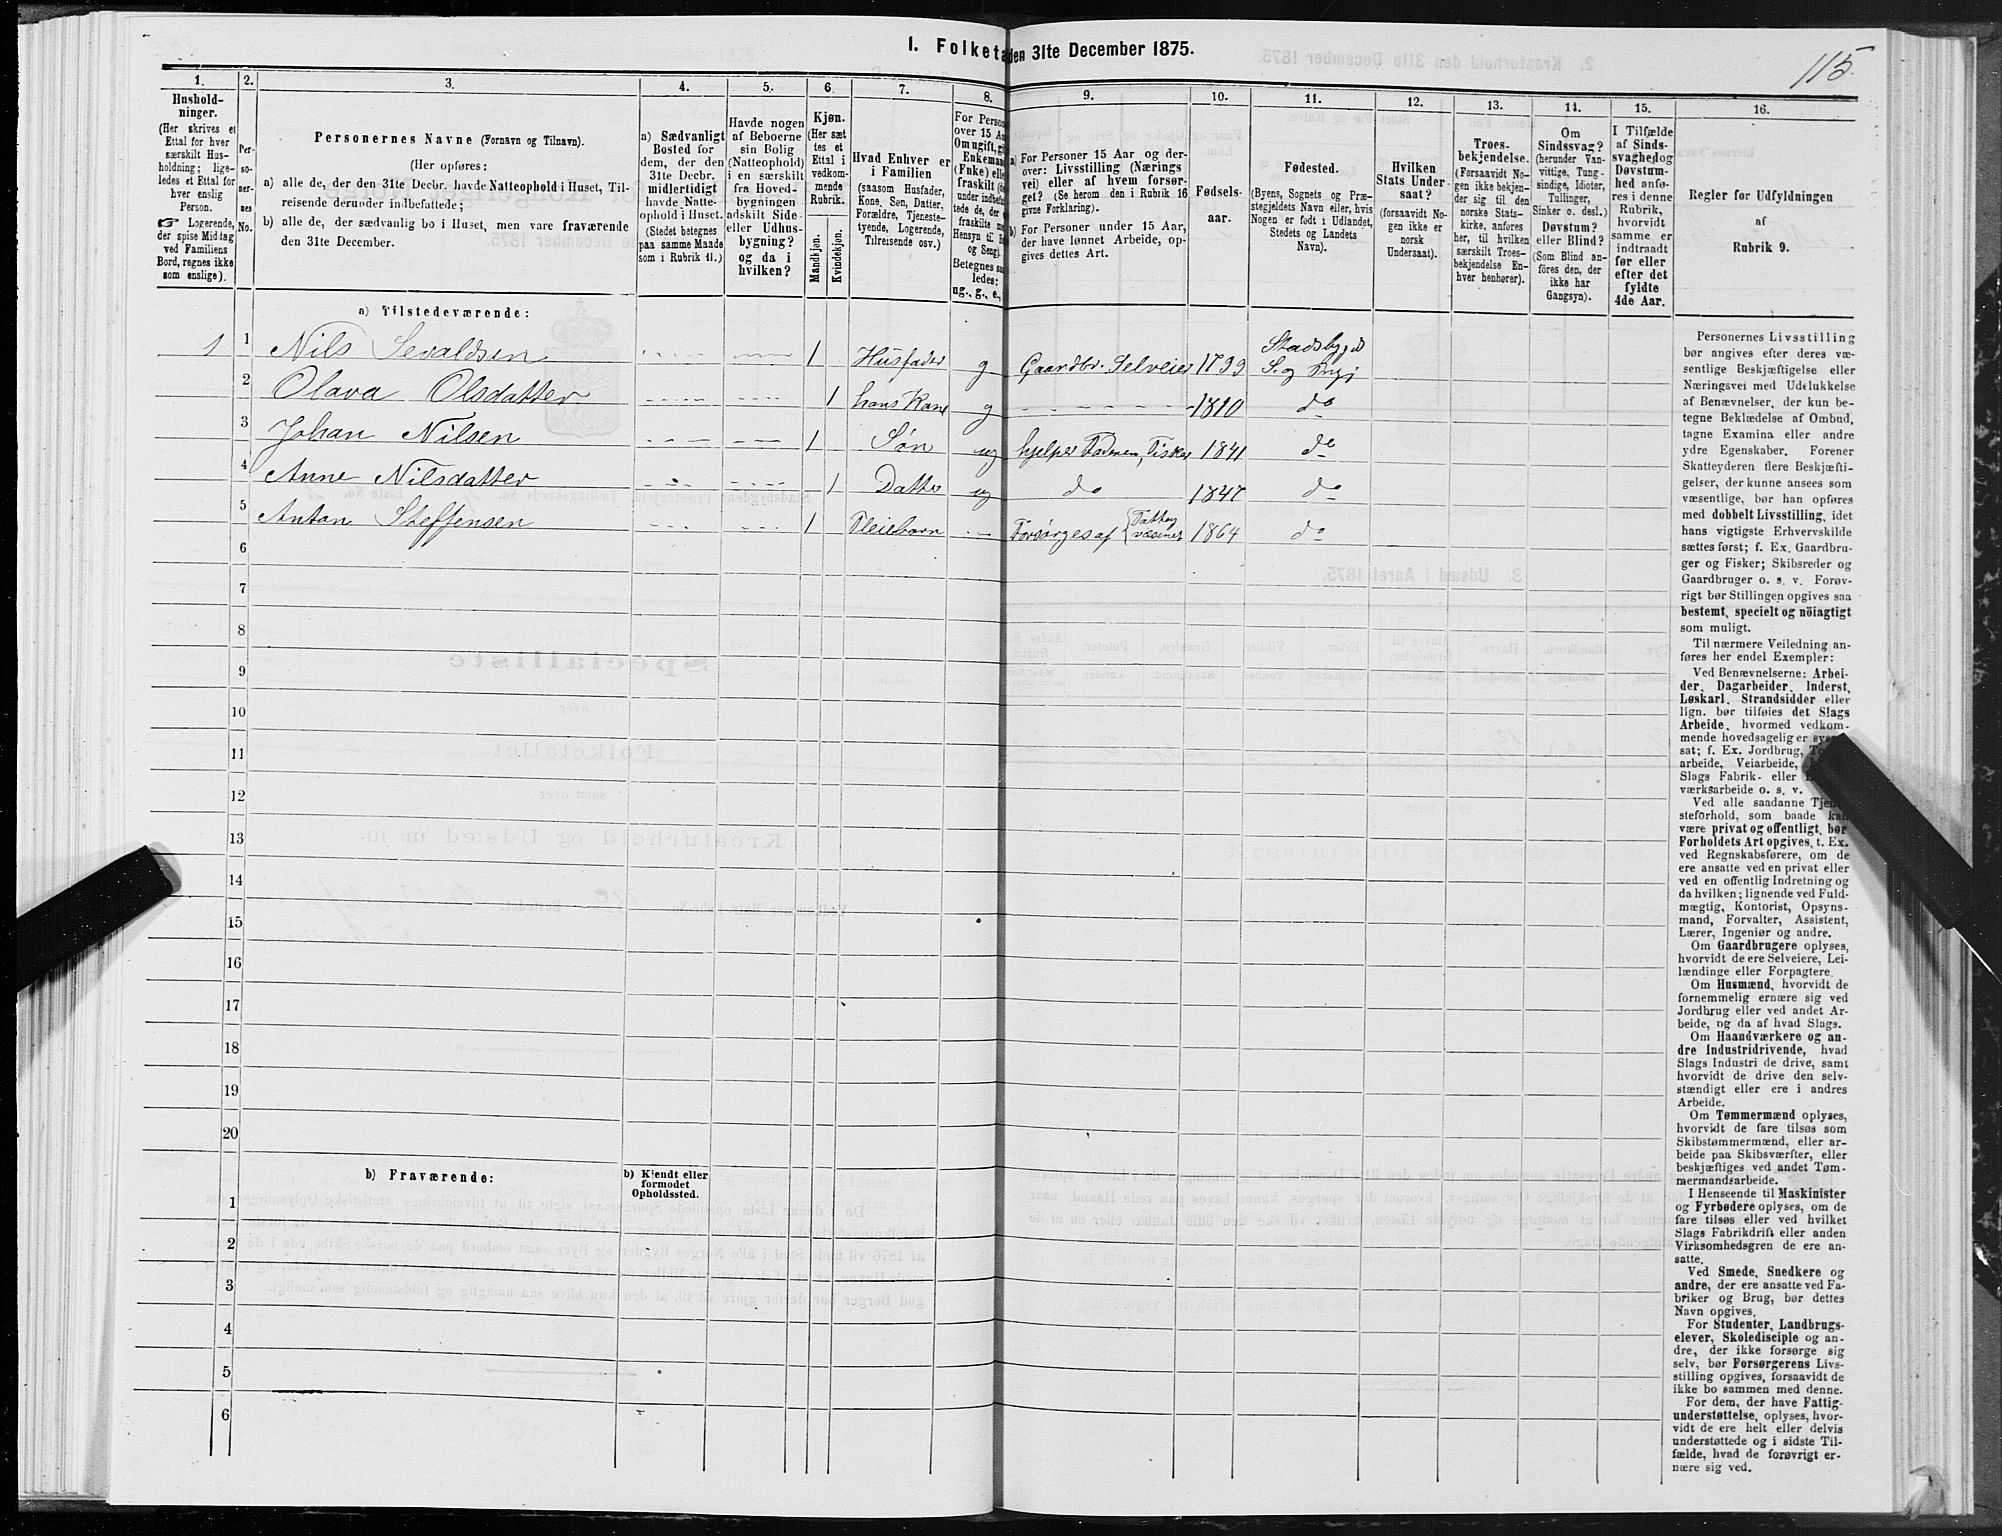 1. Folketa
den 31te December 1875.
115.
1.
Hushold-
ninger.
(Her skrives et
Ettal for hver
særskilt Hus-
holdning; lige-
ledes et Ettal for
hver enslig
Person.
☞ Logerende,
der spise Middag
ved Familiens
Bord, regnes ikke
som enslige).
2.
Per-
so-
ner-
nes
No.
3.
Personernes Navne (Fornavn og Tilnavn).
(Her opføres:
a) alle de, der den 31te Decbr. havde Natteophold i Huset, Til-
reisende derunder indbefattede;
b) alle de, der sædvanlig bo i Huset, men vare fraværende
den 31te December.
4.
a) Sædvanligt
Bosted for
dem, der den
31te Decbr.
midlertidigt
havde Natte-
ophold i Huset.
(Stedet betegnes
paa samme Maade
som i Rubrik 11.)
5.
Havde nogen
af Beboerne
sin Bolig
(Natteophold)
i en særskilt
fra Hoved-
bygningen
adskilt Side-
eller Udhus-
bygning?
og da i
hvilken?
6.
Kjøn.
(Her sæt-
tes et
Ettal i
vedkom-
mende
Rubrik.
Mandkjøn.
Kvindekjøn.
7.
Hvad Enhver er
i Familien
(saasom Husfader,
Kone, Søn, Datter,
Forældre, Tjeneste-
tyende, Logerende,
Tilreisende osv.)
8.
For Perso
over 15 Aa
Om ugift, gi
Enkemand
(Enke) elle
fraskilt (de
under indbefat
tede de, der
fraskilte m
Hensyn til B
og Seng).
Betegnes saa
ledes:
ug., g., e.,
9.
a) For Personer 15 Aar og der-
over: Livsstilling (Nærings
vei) eller af hvem forsør-
get? (Se herom den i Rubrik 16
givne Forklaring).
b) For Personer under 15 Aar,
der have lønnet Arbeide, op-
gives dettes Art.
10.
Fødsels-
aar.
11.
Fødested.
(Byens, Sognets og Præ-
stegjeldets Navn eller, hvis
Nogen er født i Udlandet,
Stedets og Landets
Navn).
12.
Hvilken
Stats Under-
saat?
(forsaavidt No-
gen ikke er
norsk
Undersaat).
13.
Troes-
bekjendelse.
(Forsaavidt No-
gen ikke bekjen-
der sig til den
norske Stats-
kirke, anføres
her, til hvilken
særskilt Troes-
bekjendelse En-
hver henhører).
14.
Om
Sindssvag?
(herunder Van-
vittige, Tung-
sindige, Idioter,
Tullinger,
Sinker o. desl.)
Døvstum?
eller Blind?
(Som Blind an-
føres den, der
ikke har
Gangsyn).
15.
I Tilfælde
af Sinds-
svaghed og
Døvstum-
hed anfø-
res i denne
Rubrik,
hvorvidt
samme er
indtraadt
før eller
efter det
fyldte
4de Aar.
16.
Regler for Udfyldningen
af
Rubrik 9.
a) Tilstedeværende:
1 1 Nils Sevaldsen 1 Husfader g Gaardbr. Selveier 1799 Stadsbygds S. og Prgj
2 Olava Olsdatter 1 hans Kone g 1810 do
3 Johan Nilsen 1 Søn ug hjelper Faderen, Fisker 1841 do
4 Anne Nilsdatter 1 Datter ug do 1847 do
5 Anton Steffensen 1 Pleiebarn Forsørges af Fattigvæsenet 1864 do
6
7
8
9
10
11
12
13
14
15
16
17
18
19
20
b) Fraværende:
b) Kjendt eller
formodet
Opholdssted.
1
2
3
4
5
6
Personernes Livsstilling
bør angives efter deres væ-
sentlige Beskjæftigelse eller
Næringsvei med Udelukkelse
af Benævnelser, der kun be-
tegne Beklædelse af Ombud,
tagne Examina eller andre
ydre Egenskaber. Forener
Skatteyderen flere Beskjæfti-
gelser, der kunne ansees som
væsentlige, bør han opføres
med dobbelt Livsstilling, idet
hans vigtigste Erhvervskilde
sættes først; f. Ex. Gaardbru-
ger og Fisker; Skibsreder og
Gaardbruger o. s. v. Forøv-
rigt bør Stillingen opgives saa
bestemt, specielt og nöiagtigt
som muligt.
Til nærmere Veiledning an-
føres her endel Exempler:
Ved Benævnelserne: Arbei-
der, Dagarbeider, Inderst,
Løskarl, Strandsidder eller
lign. bør tilføies det Slags
Arbeide, hvormed vedkom-
mende hovedsagelig er syssel-
sat; f. Ex. Jordbrug,
arbeide, Veiarbeide,
Slags Fabrik- eller
værksarbeide o. s. v.
Ved alle saadanne Tjene-
steforhold, som baade kan
være privat og offentligt, bør
Forholdets Art opgives, t. Ex.
ved Regnskabsførere, om de
ere ansatte ved en privat eller
ved en offentlig Indretning og
da hvilken; lignende ved Fuld-
mægtig, Kontorist, Opsyns-
mand, Forvalter, Assistent,
Lærer, Ingeniør og andre.
Om Gaardbrugere oplyses,
hvorvidt de ere Selveiere, Lei-
lændinge eller Forpagtere.
Om Husmænd, hvorvidt de
fornemmelig ernære sig ved
Jordbrug eller ved andet Ar-
beide, og da af hvad Slags.
Om Haandværkere og an-
dre Industridrivende, hvad
Slags Industri de drive, samt
hvorvidt de drive den selv-
stændigt eller ere i andres
Arbeide.
Om Tømmermænd oplyses,
hvorvidt de fare tilsøs som
Skibstømmermænd, eller ar-
beide paa Skibsværfter, eller
beskjæftiges ved andet Tøm-
mermandsarbeide.
I Henseende til Maskinister
og Fyrbødere oplyses, om de
fare tilsøs eller ved hvilket
Slags Fabrikdrift eller anden
Virksomhedsgren de ere an-
satte.
Ved Smede, Snedkere og
andre, der ere ansatte ved Fa-
briker og Brug, bør dettes
Navn opgives.
For Studenter, Landbrugs-
elever, Skoledisciple og an-
dre, der ikke forsørge sig
selv, bør Forsørgerens Livs-
stilling opgives, forsaavidt de
ikke bo sammen med denne.
For dem, der have Fattig-
understøttelse, oplyses, hvor-
vidt de ere helt eller delvis
understøttede og i sidste Til-
fælde, hvad de forøvrigt er-
nære sig ved.